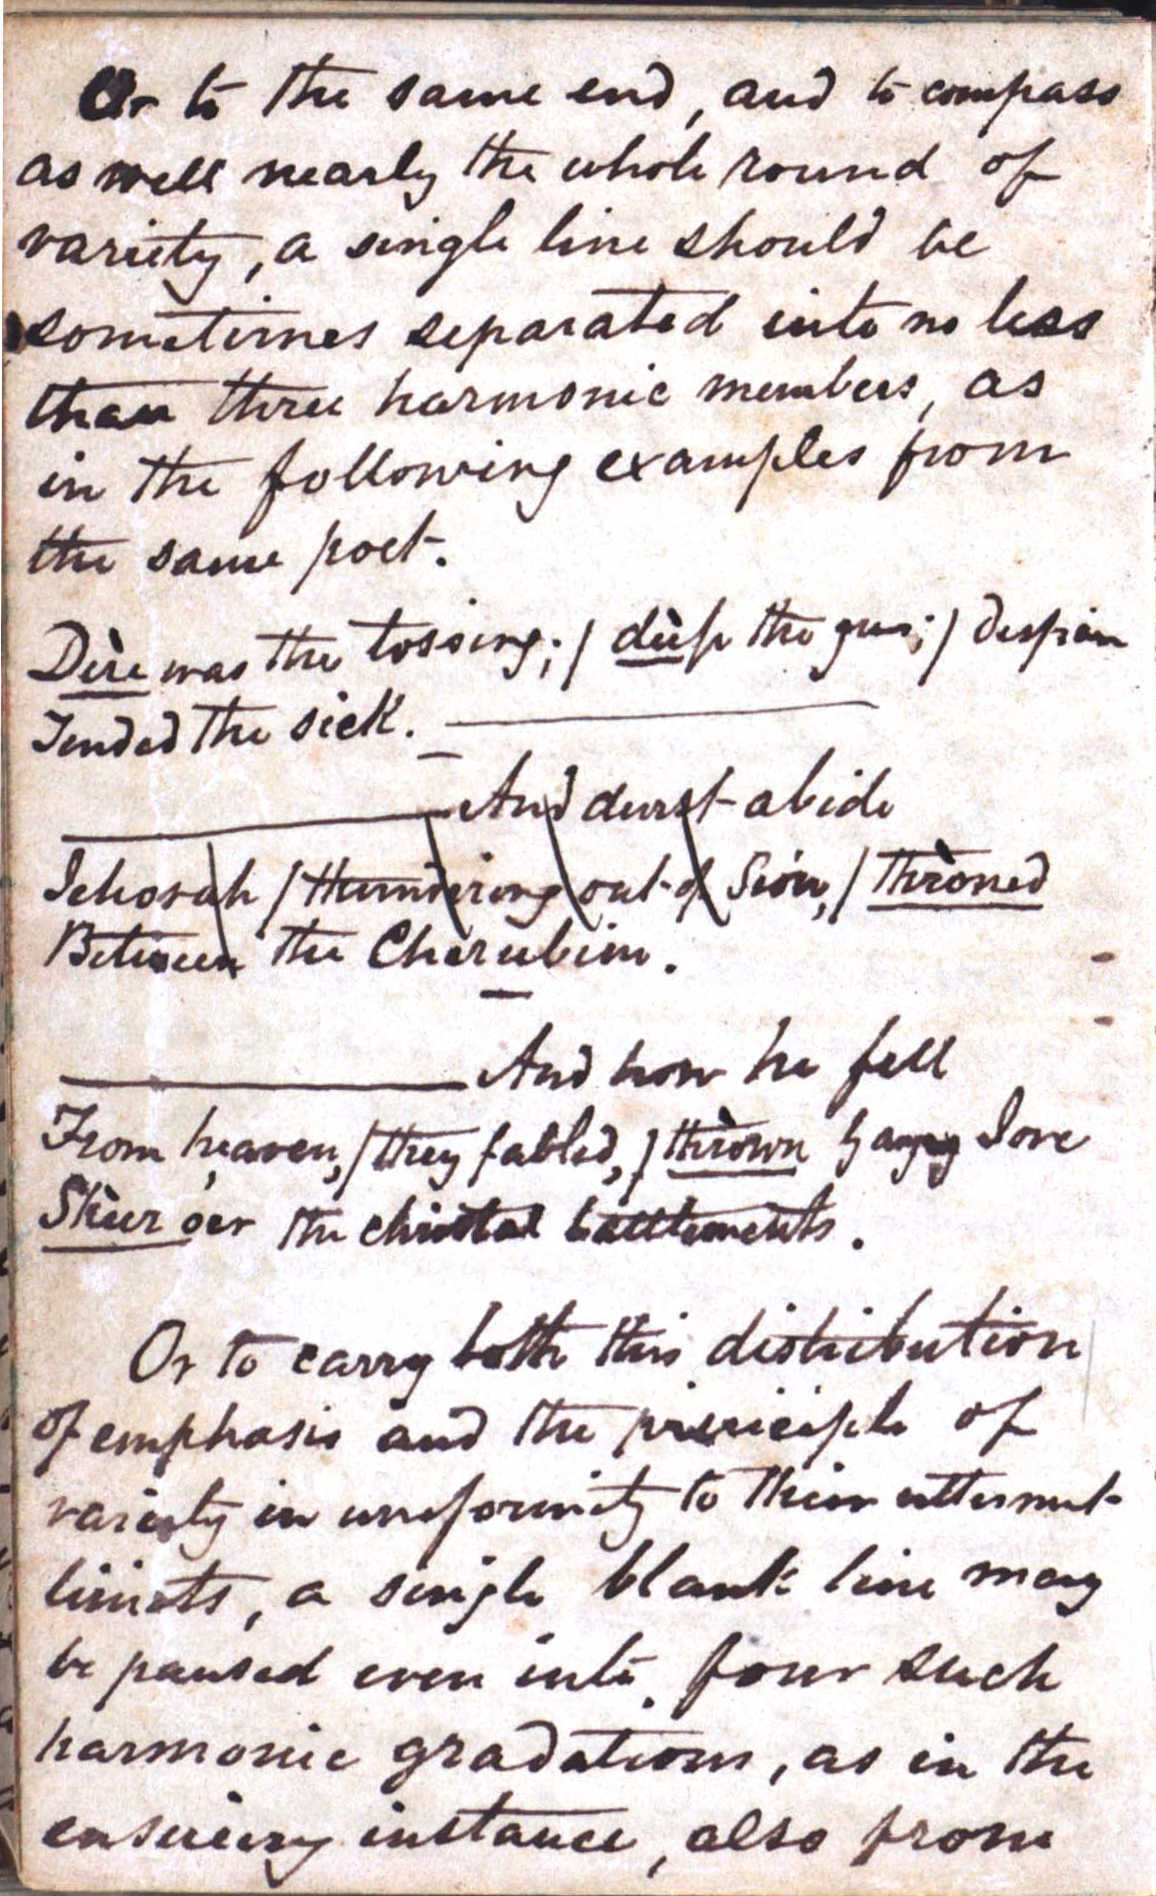 Or to the same end, and to compass
as well nearly the whole round of
variety, a single line should be
sometimes separated into no less
than three harmonic members, as
in the following examples from
the same poet.
Dìre was the tossing; / dèep the groans; / despair
Tended the sick.
And durst abide
Jehovah / thundering out of Sion, / thròned
Between the Cherubim.
And how he fell
From heaven, / they fabled, / thròwn by angry Jove
Shèer o'er the christal battlements.
Or to carry both this distribution
of emphasis and the principle of
variety in uniformity to their uttermost
limits, a single blank line may
be paused even into four such
harmonic gradations, as in the
ensuing instance, also from